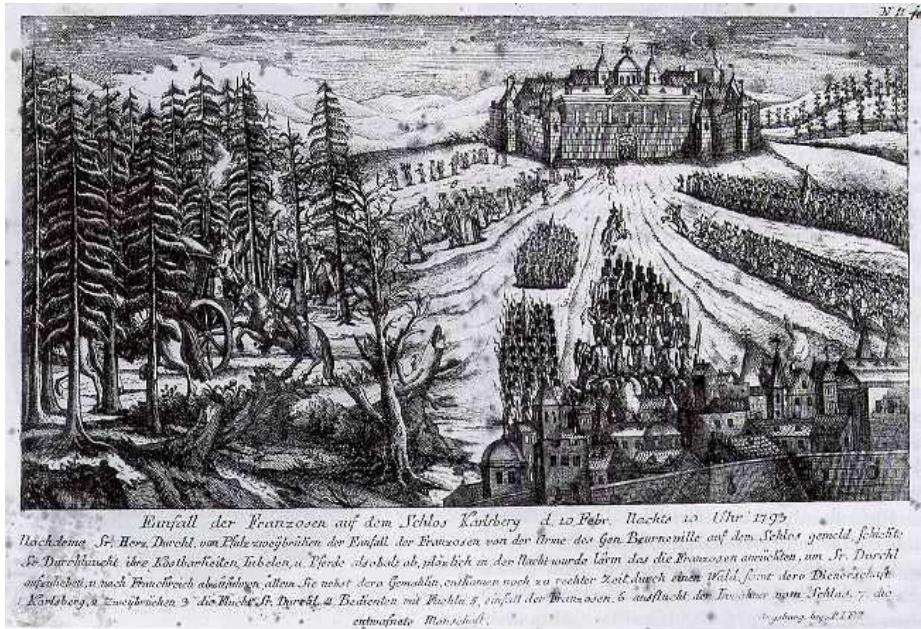 Einfall der Franzosen auf dem Schlos Karlsberg d. 10 Febr. Nachts 10 Uhr 1793
Nachdeme Sr. Herz. Durchl. von Pfalzzweÿbrüken der Einfall der Franzosen von der Arme des Gen. Beurnonville auf dem Schlos gemeld, schickte
Sr. Durchlaucht ihre Kostbarkeiten, u. Pferde alsobald ab, plözlich in der Nacht wurde lärm das die Franzosen anrückten, um Sr. Durchl
aufzuheben, u. nach Franckreich abzuführen, allein Sie nebst dero Gemahlin, entkamen noch zu rechter Zeit durch einen Wald, samt dero Dienerschaft
1 Karlsberg, 2 Zweÿbrücken 3 die Flucht Sr. Durchl. 4 Bedienten mit 5, einfall der Franzosen. 6 ausflucht der Inwohner vom Schlos, 7. die
entwafnete Manschaft.
Augsburg. beÿ